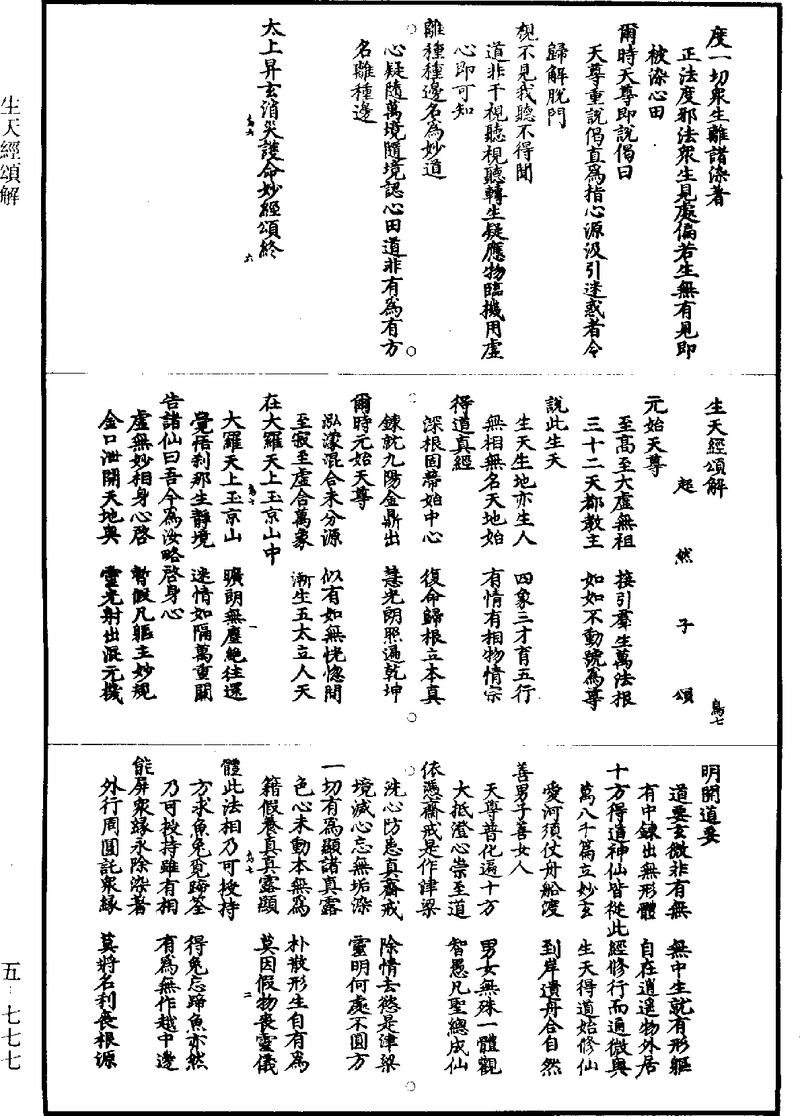 度一切衆生離諸染著
正法度邪法衆生見處偏若生無有見即
被染心田
爾時天尊即說偈曰
天尊重說偈直爲指心源汲引迷惑者令
歸解脫門
視不見我聽不得聞
道非干視聽視聽轉生疑應物臨機用虛
心即可知
離種種邊名爲妙道
心疑隨萬境隨境認心田道非有爲有方
名離種邊
太上昇玄消災護命妙經頌終
生天經頌解
超然子頌
鳥七
元始天尊
至高至大虛無祖 接引羣生萬法根
三十二天都教主 如如不動號爲尊
說此生天
生天生地亦生人 四象三才育五行
無相無名天地始 有情有相物情宗
得道真經
深根固蔕始中心 復命歸根立本真
鍊就九陽金鼎出 慧光朗照遍乾坤
爾時元始天尊
泓濛混合未分源 似有如無恍惚間
至寂至虛含萬象 漸生五太立人天
在大羅天上玉京山中
大羅天上玉京山 曠朗無塵絶往還
覺悟刹那生靜境 迷情如隔萬重關
告諸仙曰吾今爲汝略啓身心
虛無妙相身心啓 暫假凡軀主妙規
金口泄開天地奥 靈光射出混元機
明開道要
道要玄微非有無 無中生就有形軀
有中鍊出無形體 自在逍遥物外居
十方得道神仙皆從此經修行而通微奥
萬八千篇立妙玄 生天得道始修仙
愛河須仗舟船渡 到岸遺舟合自然
善男子善女人
天尊普化遍十方 男女無殊一體觀
大抵澄心崇至道 智愚凡聖總成仙
依憑齋戒是作津梁
洗心防患真齋戒 除情去慾是津梁
境滅心忘無垢染 靈明何處不圓方
一切有爲顯諸真露
色心未動本無爲 朴散形生自有爲
籍假養真真露顯 莫因假物喪靈儀
體此法相乃可授持
方求魚兔覓蹄筌 得兔忘蹄魚亦然
乃可授持雖有相 有爲無作越中邊
能屏衆緣永除染著
外行周圓託衆緣 莫將名利喪根源
生天經頌解
五‐七七七